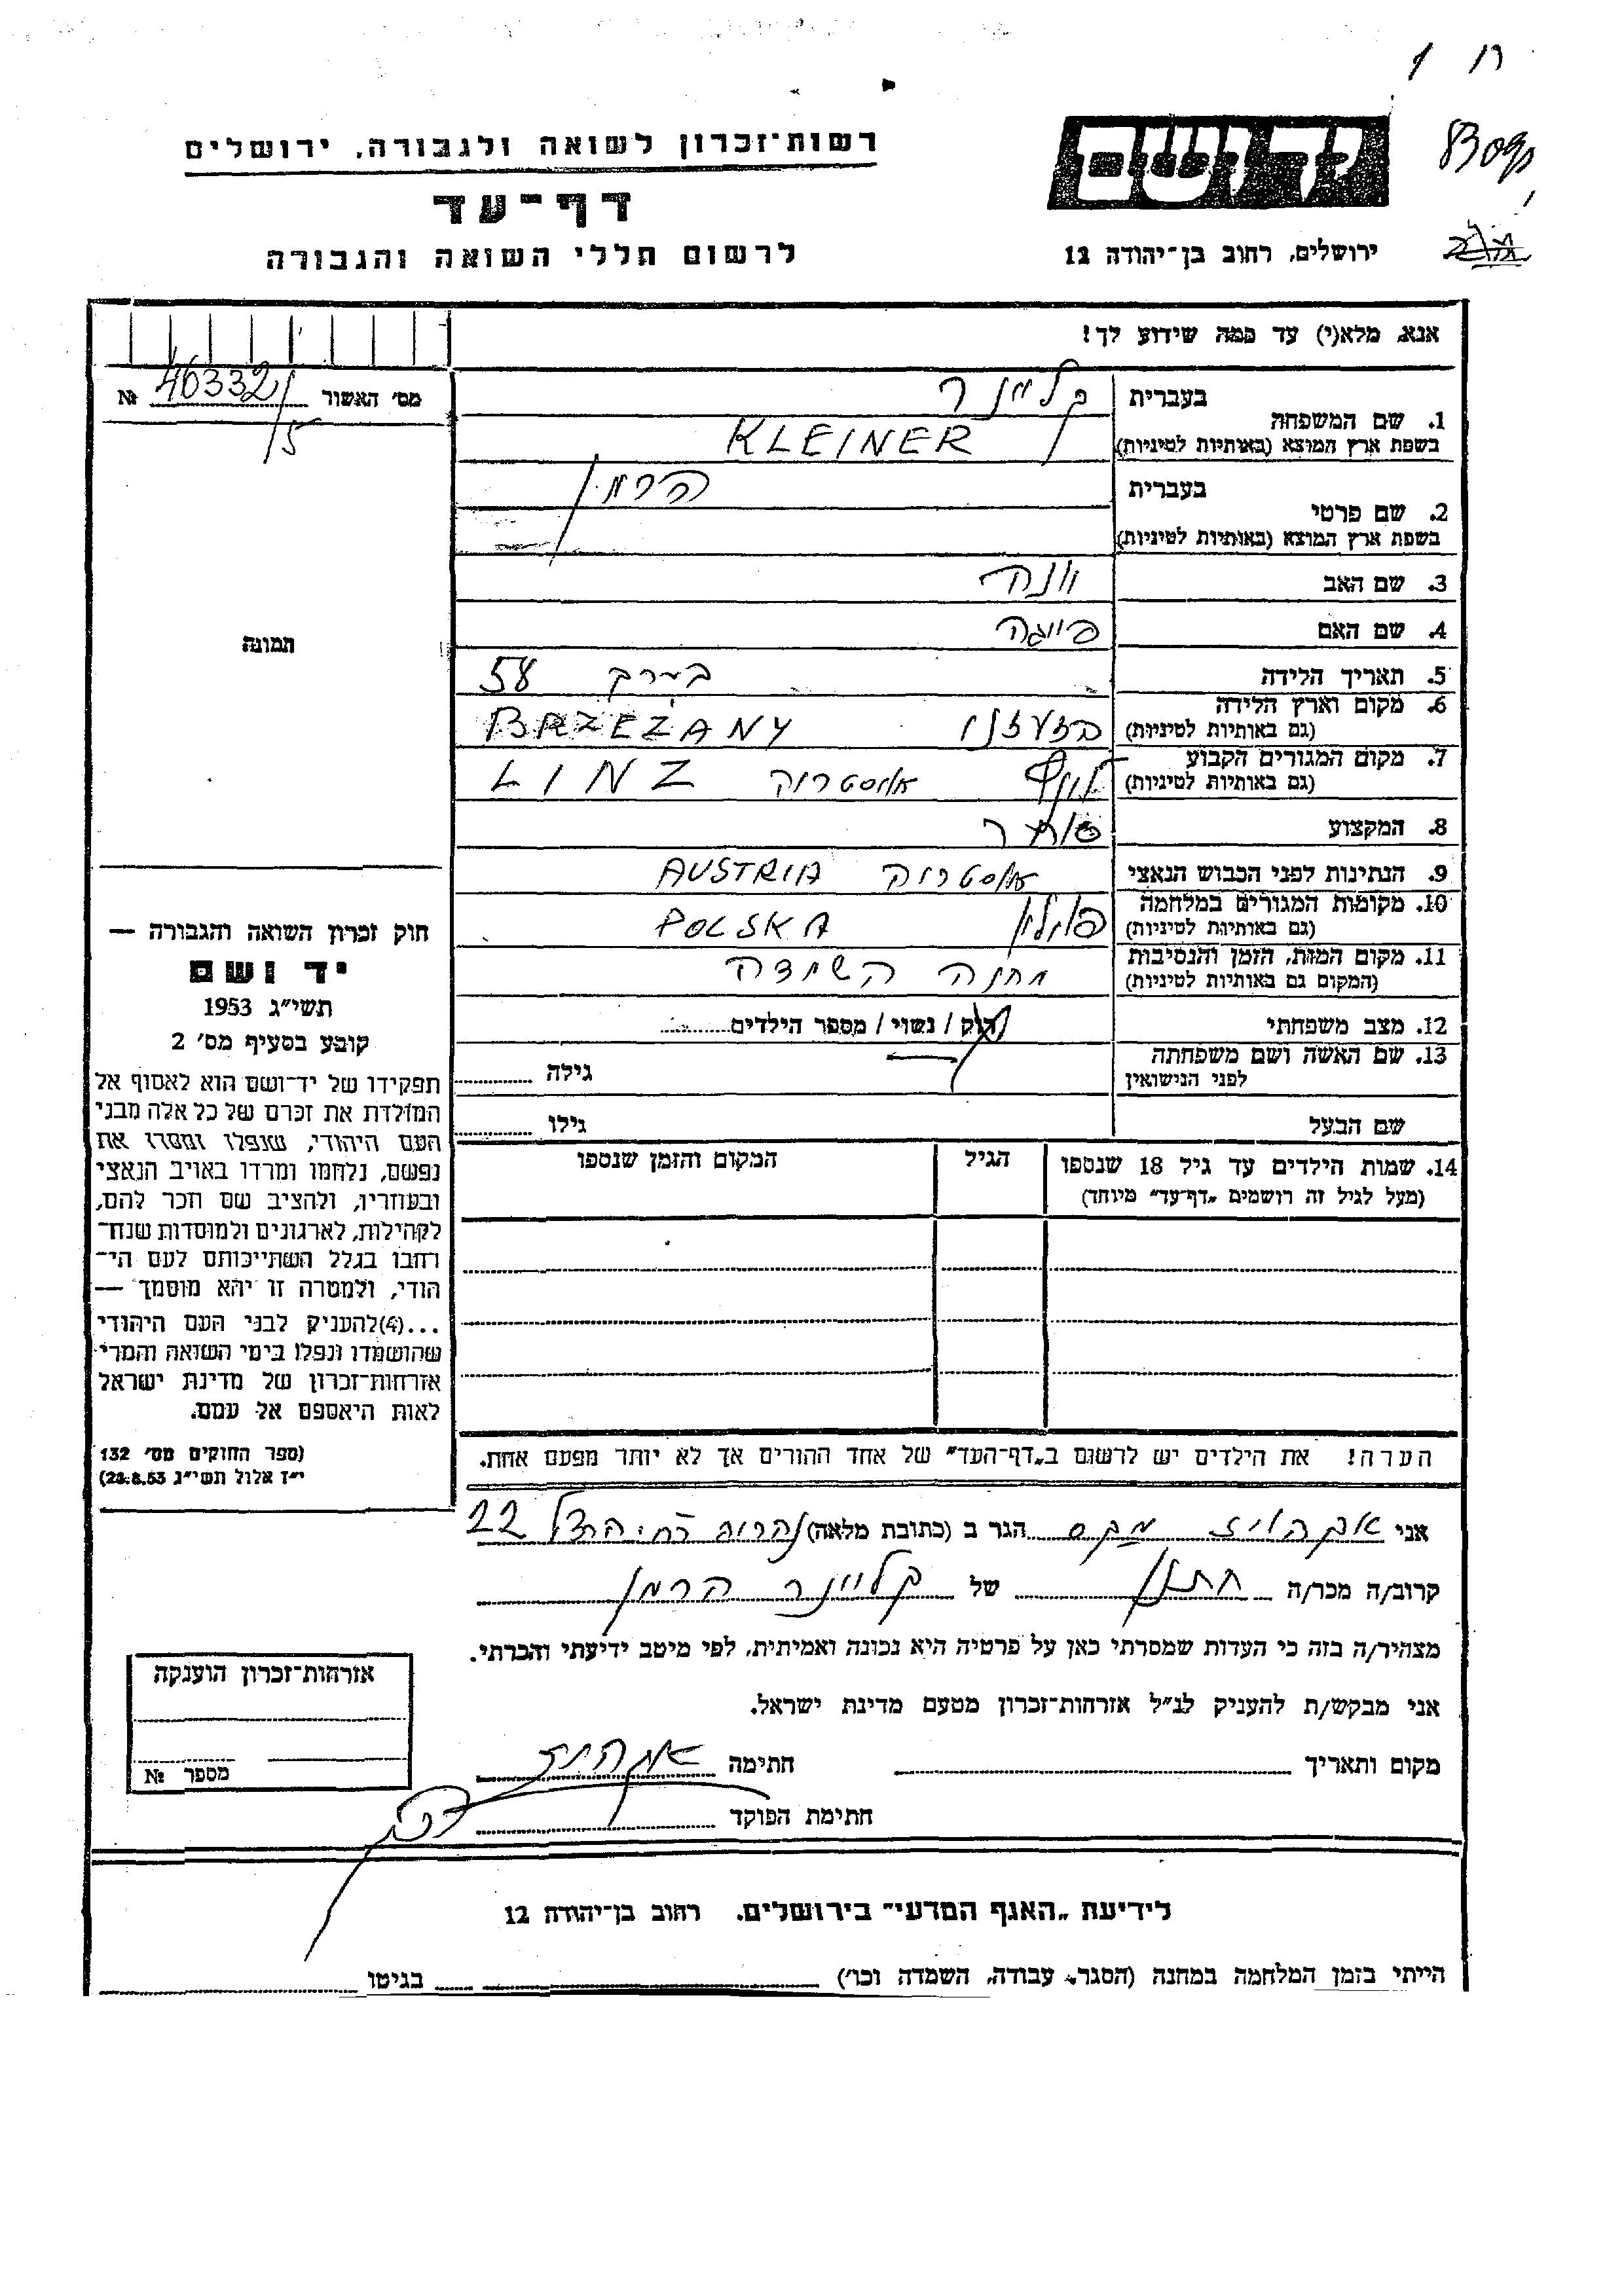 רשות־זכרון לשואה ולגבורה, ירושלים
דף־עד
לרשום חללי השואה והגבורה
יד ושם
ירושלים, רחוב בן־יהודה 12
אנא, מלא(י) עד כמה שידוע לך!
מס׳ האשור 46332/5 №
1. שם המשפחה בעברית קליינר
בשפת ארץ המוצא (באותיות לטיניות) KLEINER
2. שם פרטי בעברית הרמן
בשפת ארץ המוצא (באותיות לטיניות)
3. שם האב יונה
4. שם האם פייגה
5. תאריך הלידה בערך 58
6. מקום וארץ הלידה
(גם באותיות לטיניות) BRZEZANY
7. מקום המגורים הקבוע
(גם באותיות לטיניות) לינץ אוסטריה LINZ
8. המקצוע סוחר
9. הנתינות לפני הכבוש הנאצי אוסטריה AUSTRIA
10. מקומות המגורים במלחמה
(גם באותיות לטיניות) פולין POLSKA
11. מקום המות, הזמן והנסיבות
(המקום גם באותיות לטיניות) מחנה השמדה
12. מצב משפחתי רוק / נשוי / מספר הילדים
13. שם האשה ושם משפחתה
לפני הנישואין גילה
שם הבעל גילו
14. שמות הילדים עד גיל 18 שנספו הגיל המקום והזמן שנספו
(מעל לגיל זה רושמים „דף־עד״ מיוחד)
הערה! את הילדים יש לרשום ב„דף־העד״ של אחד ההורים אך לא יותר מפעם אחת.
תמונה
חוק זכרון השואה והגבורה —
יד ושם
תשי״ג 1953
קובע בסעיף מס׳ 2
תפקידו של יד־ושם הוא לאסוף אל
המולדת את זכרם של כל אלה מבני
העם היהודי, שנפלו ומסרו את
נפשם, נלחמו ומרדו באויב הנאצי
ובעוזריו, ולהציב שם וזכר להם,
לקהילות, לארגונים ולמוסדות שנח־
רבו בגלל השתייכותם לעם הי־
הודי, ולמטרה זו יהא מוסמך —
...(4) להעניק לבני העם היהודי
שהושמדו ונפלו בימי השואה והמרי
אזרחות־זכרון של מדינת ישראל
לאות היאספם אל עמם.
(ספר החוקים מס׳ 132
י״ז אלול תשי״ג 28.8.53)
אני מקס הגר ב (כתובת מלאה) נהריה רח׳ הרצל 22
קרוב/ה מכר/ה חתן של קליינר הרמן
מצהיר/ה בזה כי העדות שמסרתי כאן על פרטיה היא נכונה ואמיתית, לפי מיטב ידיעתי והכרתי.
אני מבקש/ת להעניק לנ״ל אזרחות־זכרון מטעם מדינת ישראל.
מקום ותאריך חתימה
חתימת הפוקד
אזרחות־זכרון הוענקה
מספר №
לידיעת „האגף המדעי״ בירושלים, רחוב בן־יהודה 12
הייתי בזמן המלחמה במחנה (הסגר, עבודה, השמדה וכו׳) בגיטו